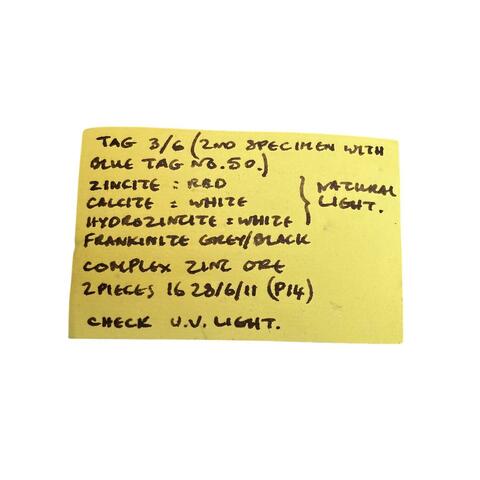 TAG 3/6 (2ND SPECIMEN WITH
BLUE TAG NO.50.)
ZINCITE = RED
CALCITE = WHITE
HYDROZINCITE = WHITE
} NATURAL
LIGHT.
FRANKINITE GREY/BLACK
COMPLEX ZINC ORE
2 PIECES 16 28/6/11 (P14)
CHECK U.V. LIGHT.